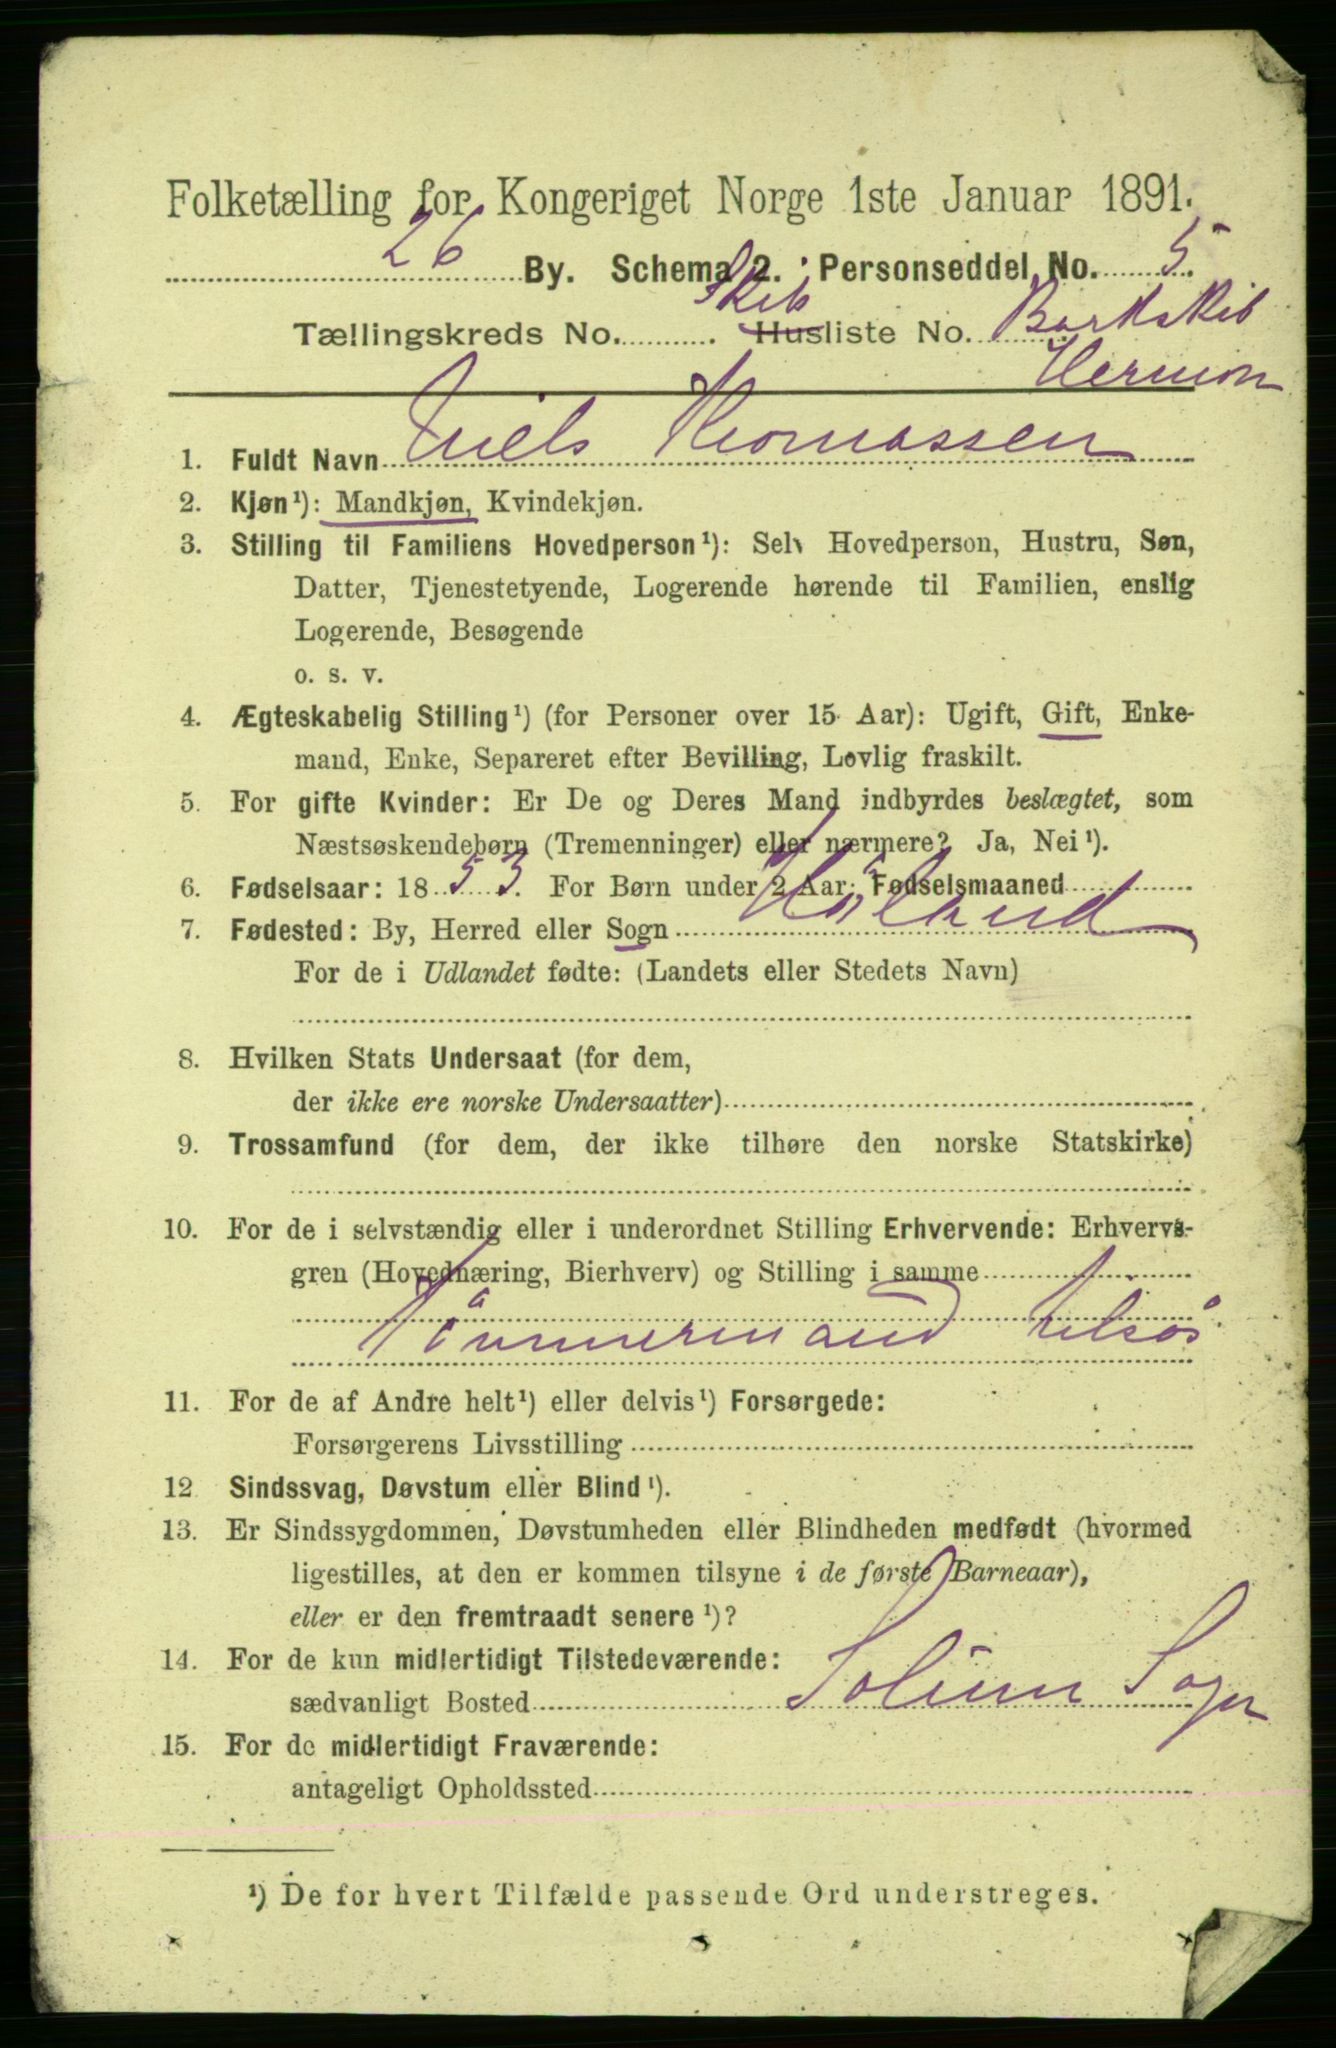 Folketælling for Kongeriget Norge 1ste Januar 1891.
26 By. Schema 2. Personseddel No. 5
Tællingskreds No. . Skibs Husliste No. Barkskib
Hermon
1. Fuldt Navn Niels Thomassen
2. Kjøn¹): Mandkjøn, Kvindekjøn.
3. Stilling til Familiens Hovedperson¹): Selv Hovedperson, Hustru, Søn,
Datter, Tjenestetyende, Logerende hørende til Familien, enslig
Logerende, Besøgende
o. s. v.
4. Ægteskabelig Stilling¹) (for Personer over 15 Aar): Ugift, Gift, Enke-
mand, Enke, Separeret efter Bevilling, Lovlig fraskilt.
5. For gifte Kvinder: Er De og Deres Mand indbyrdes beslægtet, som
Næstsøskendebørn (Tremenninger) eller nærmere? Ja, Nei¹).
6. Fødselsaar: 1853. For Børn under 2 Aar: Fødselsmaaned
7. Fødested: By, Herred eller Sogn Höland
For de i Udlandet fødte: (Landets eller Stedets Navn)
8. Hvilken Stats Undersaat (for dem,
der ikke ere norske Undersaatter)
9. Trossamfund (for dem, der ikke tilhøre den norske Statskirke)
10. For de i selvstændig eller i underordnet Stilling Erhvervende: Erhvervs-
gren (Hovednæring, Bierhverv) og Stilling i samme
Tömmermand tilsös
11. For de af Andre helt¹) eller delvis¹) Forsørgede:
Forsørgerens Livsstilling
12 Sindssvag, Døvstum eller Blind¹).
13. Er Sindssygdommen, Døvstumheden eller Blindheden medfødt (hvormed
ligestilles, at den er kommen tilsyne i de første Barneaar),
eller er den fremtraadt senere¹)?
14. For de kun midlertidigt Tilstedeværende:
sædvanligt Bosted Solum Sogn
15. For de midlertidigt Fraværende:
antageligt Opholdssted
¹) De for hvert Tilfælde passende Ord understreges.